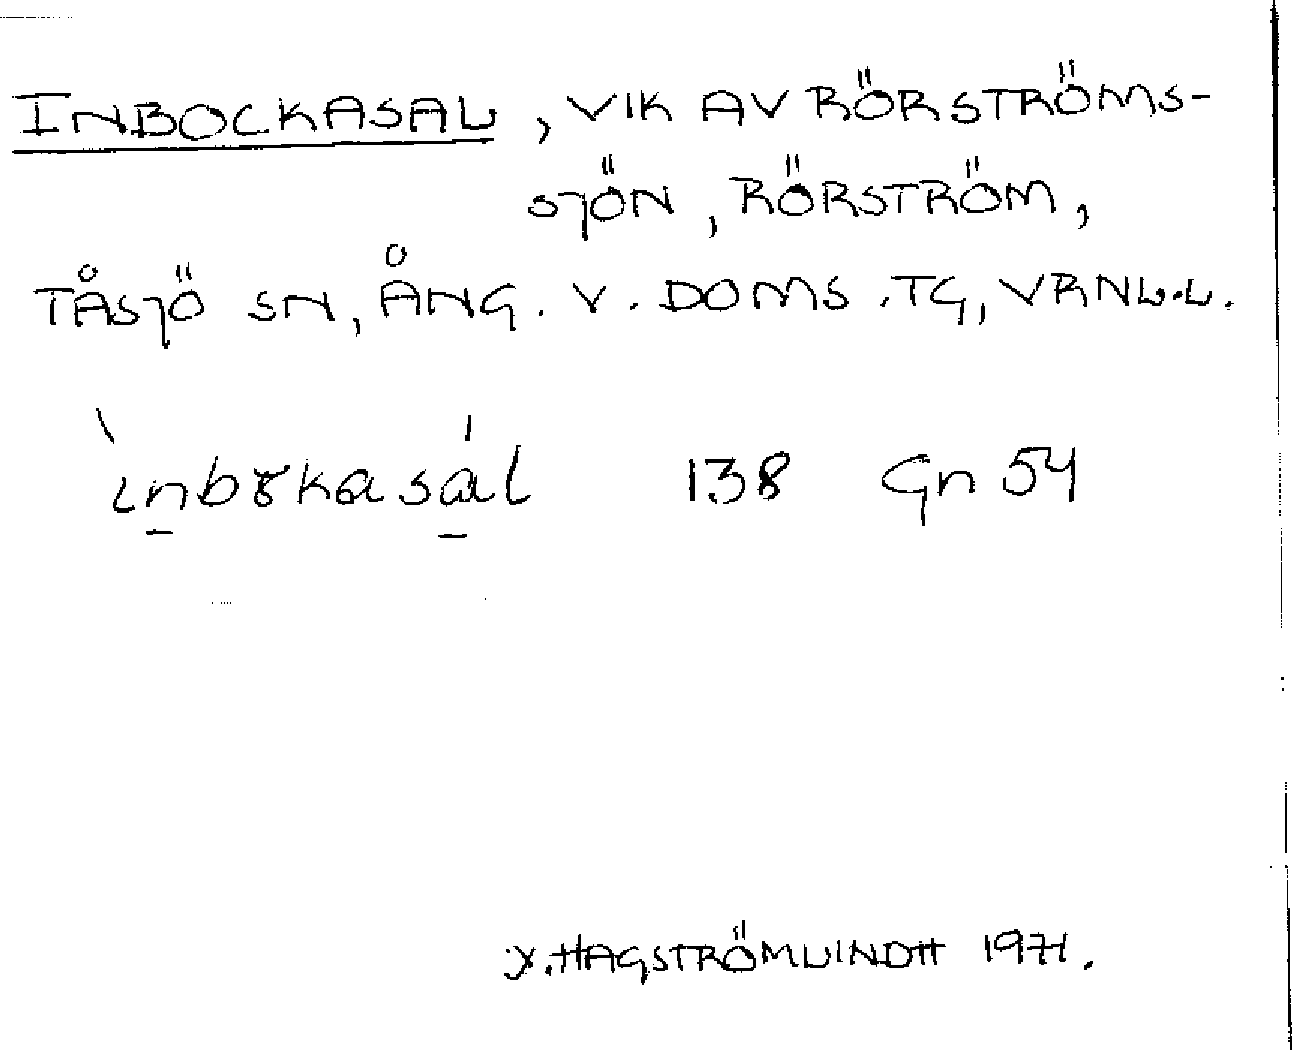 INBOCKASAL, VIK AV RÖRSTRÖMS-
SJÖN, RÖRSTRÖM,
TÅSJÖ SN, ÅNG. V. DOMS.TG, VRNL.L.
138 Gn 54
HAGSTRÖMLINDH 1971.